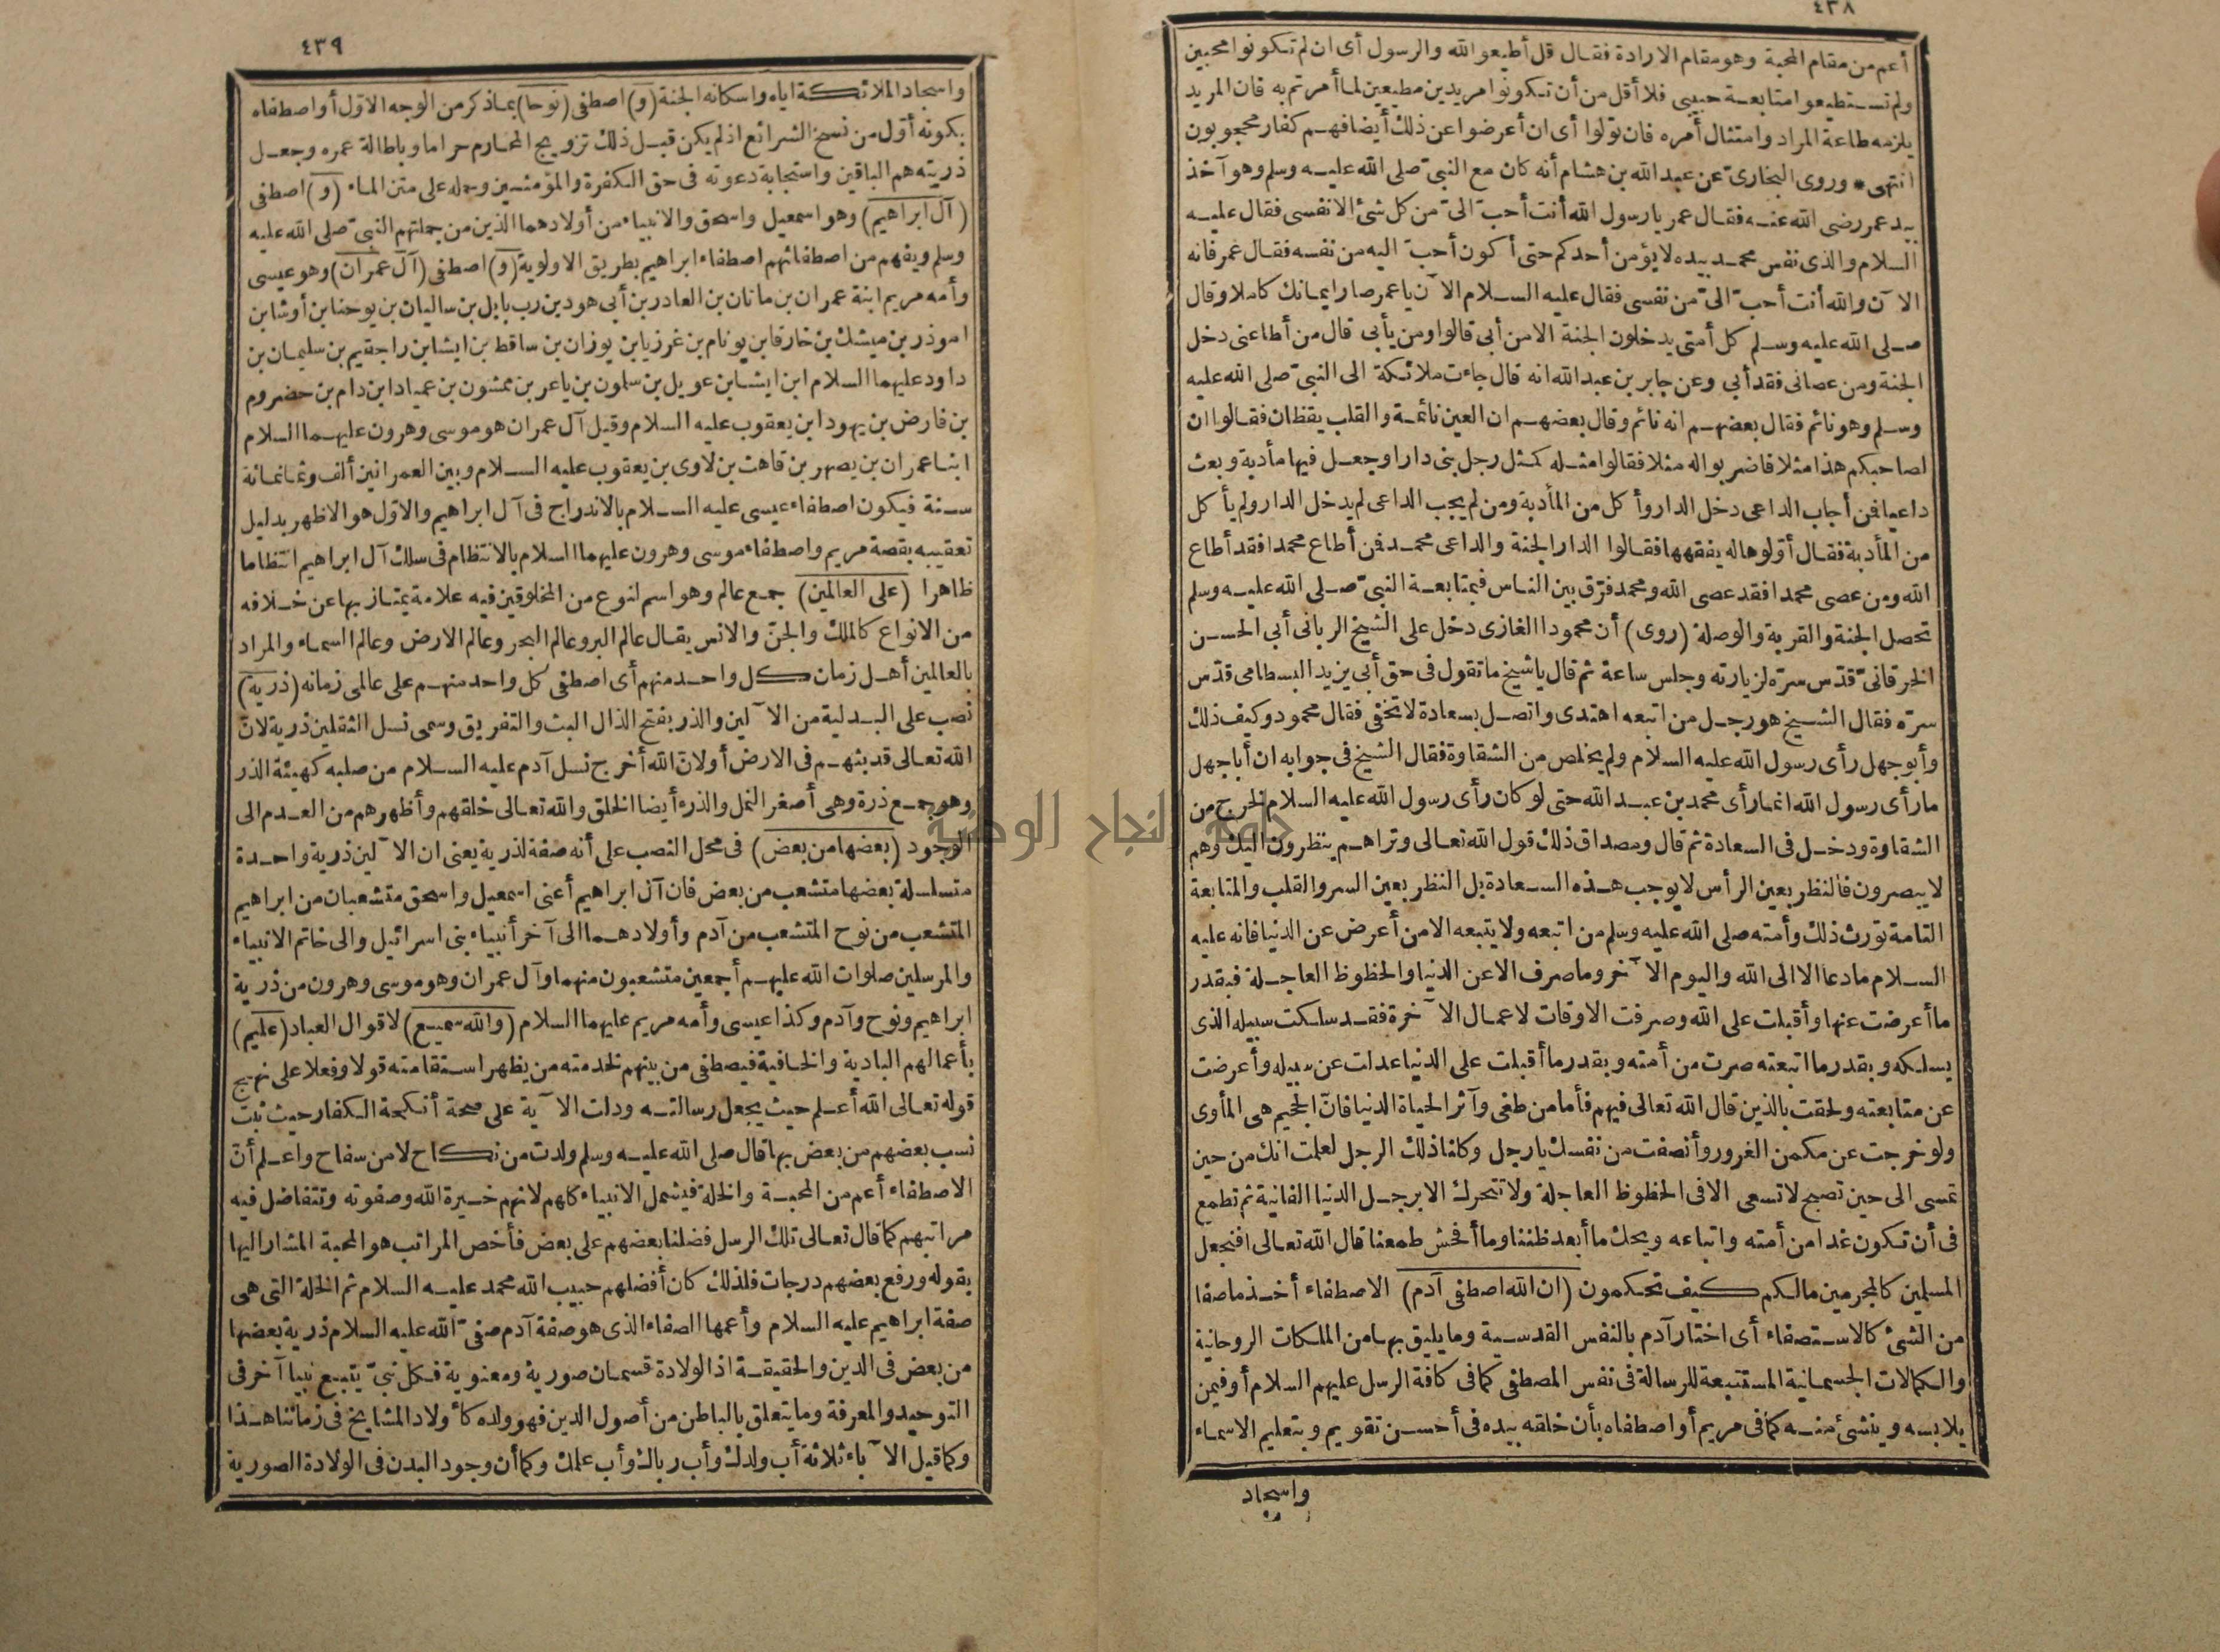 ٤٣٨
أعم من مقام المحبة وهو مقام الارادة فقال قل أطيعوا الله والرسول أى ان لم تكونوا محبين
ولم تستطيعوا متابعة حبيبى فلا أقل من أن تكونوا مريدين مطيعين لما أمرتم به فان المريد
يلزمه طاعة المراد وامتثال أمره فان تولوا أى ان أعرضوا عن ذلك أيضا فهم كفار محجوبون
انتهى * وروى البخارى عن عبد الله بن هشام أنه كان مع النبى صلى الله عليه وسلم وهو آخذ
بيد عمر رضى الله عنه فقال عمر يا رسول الله أنت أحب الى من كل شئ الا نفسى فقال عليه
السلام والذى نفس محمد بيده لا يؤمن أحدكم حتى أكون أحب اليه من نفسه فقال عمر فانه
الآن والله أنت أحب الى من نفسى فقال عليه السلام الآن يا عمر صار ايمانك كاملا وقال
صلى الله عليه وسلم كل أمتى يدخلون الجنة الا من أبى قالوا ومن يأبى قال من أطاعنى دخل
الجنة ومن عصانى فقد أبى وعن جابر بن عبد الله انه قال جاءت ملائكة الى النبى صلى الله عليه
وسلم وهو نائم فقال بعضهم انه نائم وقال بعضهم ان العين نائمة والقلب يقظان فقالوا ان
لصاحبكم هذا مثلا فاضربوا له مثلا فقالوا مثله كمثل رجل بنى دارا وجعل فيها مأدبة وبعث
داعيا فمن أجاب الداعى دخل الدار وأكل من المأدبة ومن لم يجب الداعى لم يدخل الدار ولم يأكل
من المأدبة فقال أولوها له يفقهها فقالوا الدار الجنة والداعى محمد فمن أطاع محمدا فقد أطاع
الله ومن عصى محمدا فقد عصى الله ومحمد فرّق بين الناس فبمتابعة النبى صلى الله عليه وسلم
تحصل الجنة والقربة والوصلة (روى) أن محمودا الغازى دخل على الشيخ الربانى أبى الحسن
الخرقانى قدّس سرّه لزيارته وجلس ساعة ثم قال يا شيخ ما تقول فى حق أبى يزيد البسطامى قدّس
سرّه فقال الشيخ هو رجل من اتبعه اهتدى واتصل بسعادة لا تخفى فقال محمود وكيف ذلك
وأبو جهل رأى رسول الله عليه السلام ولم يخلص من الشقاوة فقال الشيخ فى جوابه ان أبا جهل
ما رأى رسول الله انما رأى محمد بن عبد الله حتى لو كان رأى رسول الله عليه السلام لخرج من
الشقاوة ودخل فى السعادة ثم قال ومصداق ذلك قول الله تعالى وتراهم ينظرون اليك وهم
لا يبصرون فالنظر بعين الرأس لا يوجب هذه السعادة بل النظر بعين السر والقلب والمتابعة
التامة تورث ذلك وأمته صلى الله عليه وسلم من اتبعه ولا يتبعه الا من أعرض عن الدنيا فانه عليه
السلام ما دعا الا الى الله واليوم الآخر وما صرف الا عن الدنيا والحظوظ العاجلة فبقدر
ما أعرضت عنها وأقبلت على الله وصرفت الاوقات لاعمال الآخرة فقد سلكت سبيله الذى
يسلكه وبقدر ما اتبعته صرت من أمته وبقدر ما أقبلت على الدنيا عدلت عن سبيله وأعرضت
عن متابعته ولحقت بالذين قال الله تعالى فيهم فأما من طغى وآثر الحياة الدنيا فانّ الجحيم هى المأوى
ولو خرجت عن مكمن الغرور وأنصفت من نفسك يا رجل وكلنا ذلك الرجل لعلمت انك من حين
تمسى الى حين تصبح لا تسعى الا فى الحظوظ العاجلة ولا تتحرك الا برجل الدنيا الفانية ثم تطمع
فى أن تكون غدا من أمته واتباعه ويحك ما أبعد ظننا وما أفحش طمعنا قال الله تعالى افنجعل
المسلمين كالمجرمين مالكم كيف تحكمون (ان الله اصطفى آدم) الاصطفاء أخذ ما صفا
من الشئ كالاستصفاء أى اختار آدم بالنفس القدسية وما يليق بها من الملكات الروحانية
والكمالات الجسمانية المستتبعة للرسالة فى نفس المصطفى كما فى كافة الرسل عليهم السلام أو فيمن
يلابسه وينشئ منه كما فى مريم أو اصطفاه بأن خلقه بيده فى أحسن تقويم وبتعليم الاسماء
واسجاد
٤٣٩
واسجاد الملائكة اياه واسكانه الجنة (و) اصطفى (نوحا) بما ذكر من الوجه الاوّل أو اصطفاه
بكونه أوّل من نسخ الشرائع اذ لم يكن قبل ذلك تزويج المحارم حراما وباطالة عمره وجعل
ذريته هم الباقين واستجابة دعوته فى حق الكفرة والمؤمنين وحمله على متن الماء (و) اصطفى
(آل ابراهيم) وهو اسمعيل واسحق والانبياء من أولادهما الذين من جملتهم النبى صلى الله عليه
وسلم ويفهم من اصطفائهم اصطفاء ابراهيم بطريق الاولوية (و) اصطفى (آل عمران) وهو عيسى
وأمه مريم ابنة عمران بن ماتان بن العادر بن أبى هود بن رب بابل بن ساليان بن يوحنا بن أوشا بن
اموذر بن ميشك بن خارقا بن يونام بن غرزيا بن يوزان بن ساقط بن ايشا بن راجقيم بن سليمان بن
داود عليهما السلام ابن ايشا بن عويل بن سلمون بن ياعر بن ممشون بن عمياد ابن دام بن حضروم
بن فارض بن يهودا بن يعقوب عليه السلام وقيل آل عمران هو موسى وهرون عليهما السلام
ابنا عمران بن يصهر بن قاهت بن لاوى بن يعقوب عليه السلام وبين العمرانين ألف وثمانمائة
سنة فيكون اصطفاء عيسى عليه السلام بالاندراج فى آل ابراهيم والاوّل هو الاظهر بدليل
تعقيبه بقصة مريم واصطفاء موسى وهرون عليهما السلام بالانتظام فى سلك آل ابراهيم انتظاما
ظاهرا (على العالمين) جمع عالم وهو اسم لنوع من المخلوقين فيه علامة يمتاز بها عن خلافه
من الانواع كالملك والجنّ والانس يقال عالم البر وعالم البحر وعالم الارض وعالم السماء والمراد
بالعالمين أهل زمان كل واحد منهم أى اصطفى كل واحد منهم على عالمى زمانه (ذرية)
نصب على البدلية من الآلين والذر بفتح الذال البث والتفريق وسمى نسل الثقلين ذرية لانّ
الله تعالى قد بثهم فى الارض أو لانّ الله أخرج نسل آدم عليه السلام من صلبه كهيئة الذر
وهو جمع ذرة وهى أصغر النمل والذرء أيضا الخلق والله تعالى خلقهم وأظهرهم من العدم الى
الوجود (بعضها من بعض) فى محل النصب على أنه صفة لذرية يعنى ان الآلين ذرية واحدة
متسلسلة بعضها متشعب من بعض فان آل ابراهيم أعنى اسمعيل واسحق متشعبان من ابراهيم
المتشعب من نوح المتشعب من آدم وأولادهما الى آخر أنبياء بنى اسرائيل والى خاتم الانبياء
والمرسلين صلوات الله عليهم أجمعين متشعبون منهما وآل عمران وهو موسى وهرون من ذرية
ابراهيم ونوح وآدم وكذا عيسى وأمه مريم عليهما السلام (والله سميع) لاقوال العباد (عليم)
بأعمالهم البادية والخافية فيصطفى من بينهم لخدمته من يظهر استقامته قولا وفعلا على نهج
قوله تعالى الله أعلم حيث يجعل رسالته ودلت الآية على صحة أنكحة الكفار حيث ثبت
نسب بعضهم من بعض بها قال صلى الله عليه وسلم ولدت من نكاح لا من سفاح واعلم أنّ
الاصطفاء أعم من المحبة والخلة فيشمل الانبياء كلهم لانهم خيرة الله وصفوته وتتفاضل فيه
مراتبهم كما قال تعالى تلك الرسل فضلنا بعضهم على بعض فأخص المراتب هو المحبة المشار اليها
بقوله ورفع بعضهم درجات فلذلك كان أفضلهم حبيب الله محمد عليه السلام ثم الخلة التى هى
صفة ابراهيم عليه السلام وأعمها الصفاء الذى هو صفة آدم صفى الله عليه السلام ذرية بعضها
من بعض فى الدين والحقيقة اذ الولادة قسمان صورية ومعنوية فكل نبىّ يتبع نبيا آخر فى
التوحيد والمعرفة وما يتعلق بالباطن من أصول الدين فهو ولده كأولاد المشايخ فى زماننا هذا
وكما قيل الآباء ثلاثة أب ولدك وأب رباك وأب علمك وكما أن وجود البدن فى الولادة الصورية
جامعة النجاح الوطنية